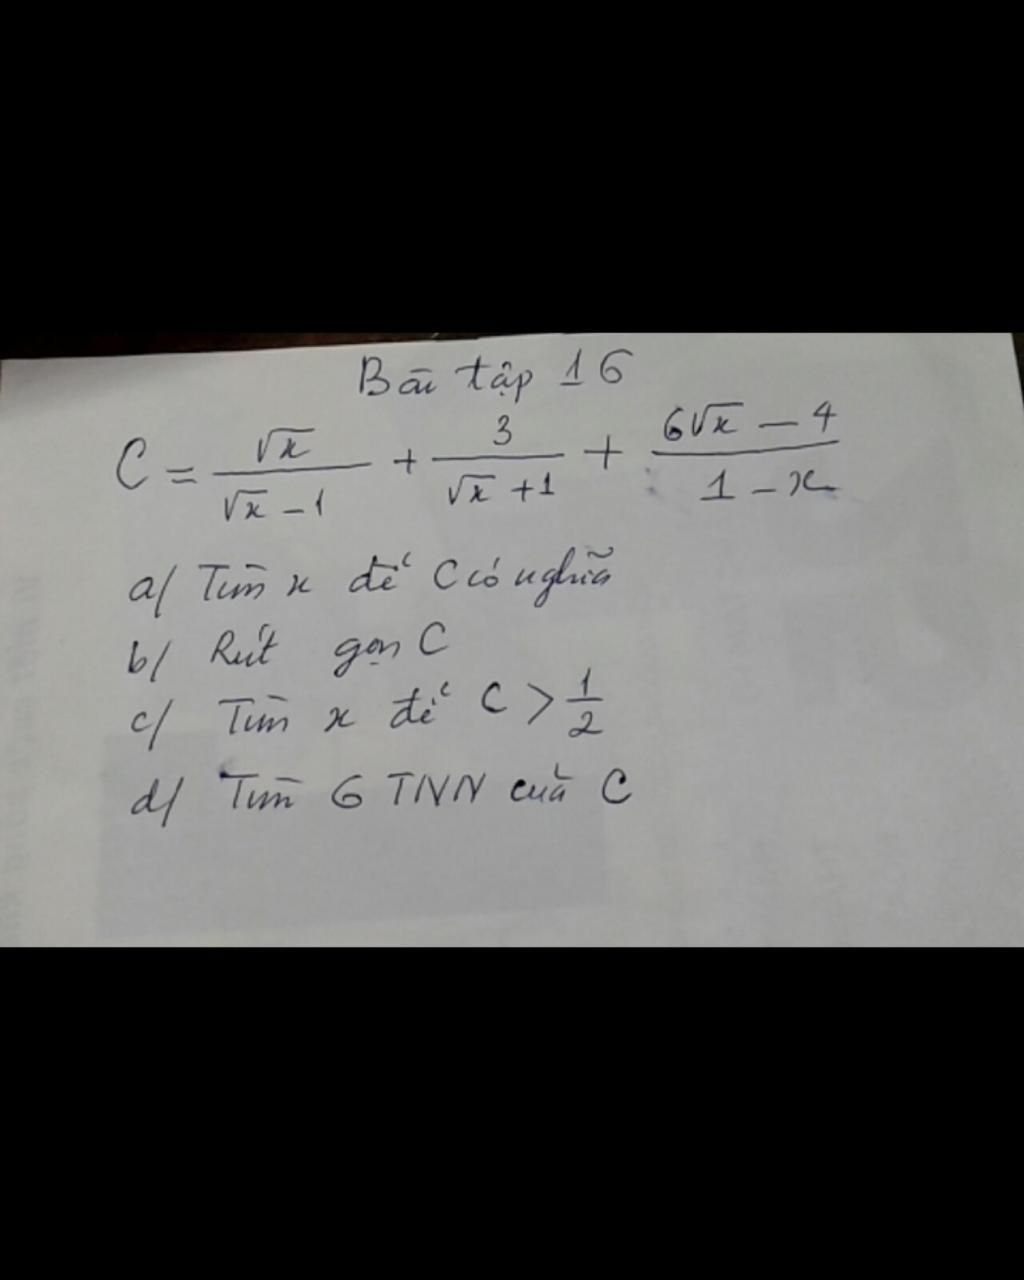 Bài tập 16
C = √x / (√x - 1) + 3 / (√x + 1) + (6√x - 4) / (1 - x)
a/ Tìm x để C có nghĩa
b/ Rút gọn C
c/ Tìm x để C > 1/2
d/ Tìm GTNN của C